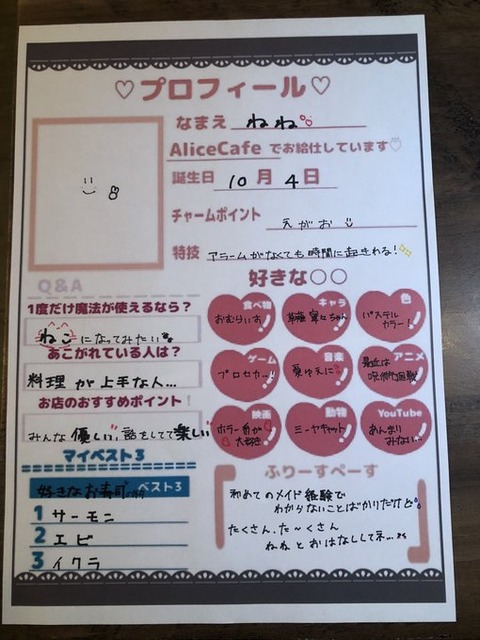 ♡プロフィール♡
なまえ ねね
AliceCafe でお給仕しています♡
誕生日 10月4日
チャームポイント えがお
特技 アラームがなくても時間に起きれる!
Q&A
1度だけ魔法が使えるなら?
ねこになってみたい
あこがれている人は?
料理が上手な人...
お店のおすすめポイント!
みんな優しい、話をしてて楽しい
好きな○○
食べ物
おむらいす
キャラ
草薙寧々ちゃん
色
パステルカラー!
ゲーム
プロセカ
音楽
アニメ
最近は呪術廻戦
映画
ホラー系が大好き
動物
ミーアキャット
YouTube
あんまりみない...
マイベスト3
好きなお寿司 ベスト3
1 サーモン
2 エビ
3 イクラ
ふりーすぺーす
初めてのメイド経験で
わからないことばかりだけど
たくさん、た〜くさん
ねねとおはなししてネ...